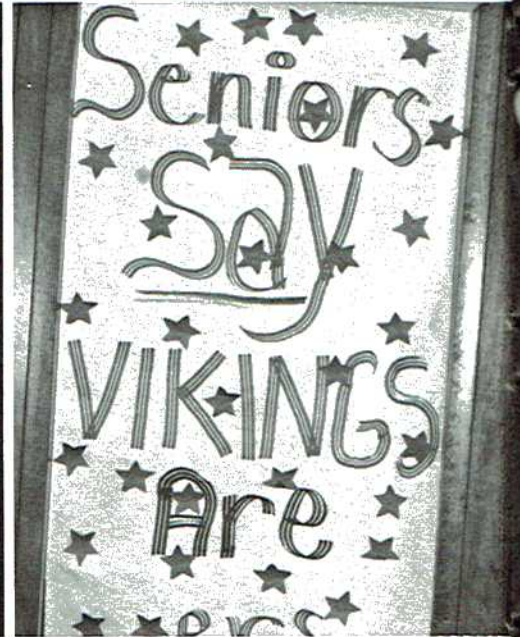 Seniors
Say
VIKINGS
Are